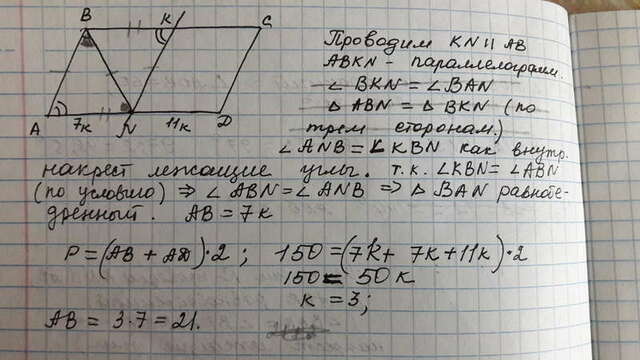 B K C
A 7к N 11к D
Проводим KN || AB
ABKN - параллелограмм.
∠ BKN = ∠ BAN
Δ ABN = Δ BKN (по
трем сторонам.)
∠ ANB = ∠ KBN как внутр.
накрест лежащие углы. т.к. ∠KBN = ∠ABN
(по условию) ⇒ ∠ ABN = ∠ ANB ⇒ Δ BAN равнобе-
дренный. AB = 7к
P = (AB + AD) · 2 ; 150 = (7к + 7к + 11к) · 2
150 = 50 к
к = 3 ;
AB = 3 · 7 = 21.